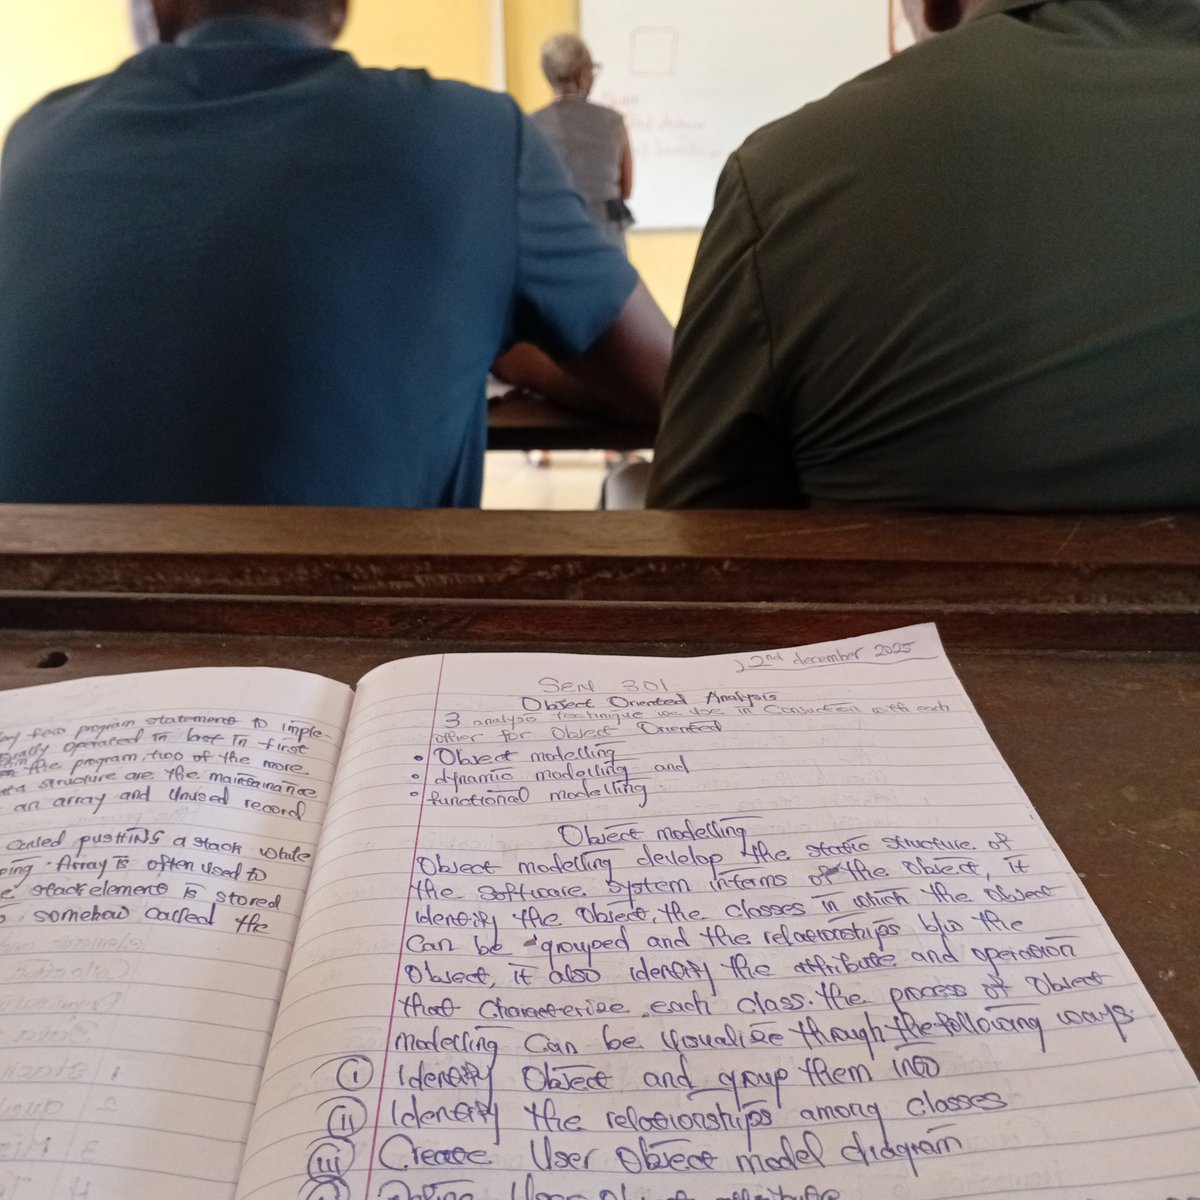 few program statement to imple-
operated in last in first
the program. two of the more
structure are the maintainance
an array and Unused record
called pushing a stack while
ping. Array is often used to
stack element is stored
somehow called the
22nd december 2025
SEN 301
Object Oriented Analysis
3 analysis technique we use in Conjuction with each
other for Object Oriented
• Object modelling
• dynamic modelling and
• functional modelling
Object modelling
Object modelling develop the static structure of
the software system interms of the Object, it
identify the Object, the classes in which the Object
Can be grouped and the relationships b/w the
Object, it also identify the attribute and operation
that Characterize each class. the process of Object
modelling Can be Visualize through the following ways.
(i) Identify Object and group them into
(ii) Identify the relationships among classes
(iii) Create User Object model diagram
Define User Object attribute